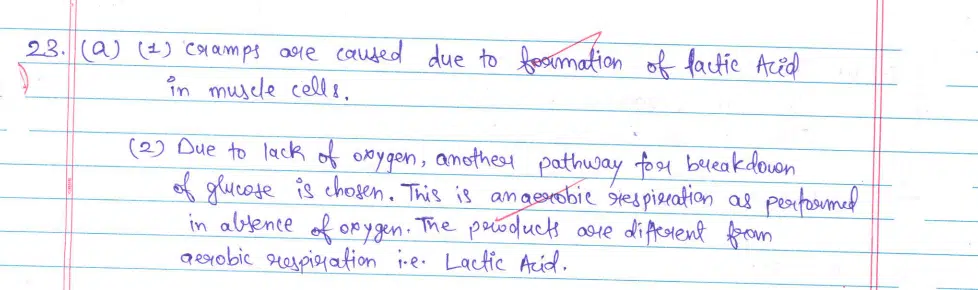 23. (a) (1) Cramps are caused due to formation of lactic Acid
in muscle cells.
(2) Due to lack of oxygen, another pathway for breakdown
of glucose is chosen. This is anaerobic respiration as performed
in absence of oxygen. The products are different from
aerobic respiration i.e. Lactic Acid.